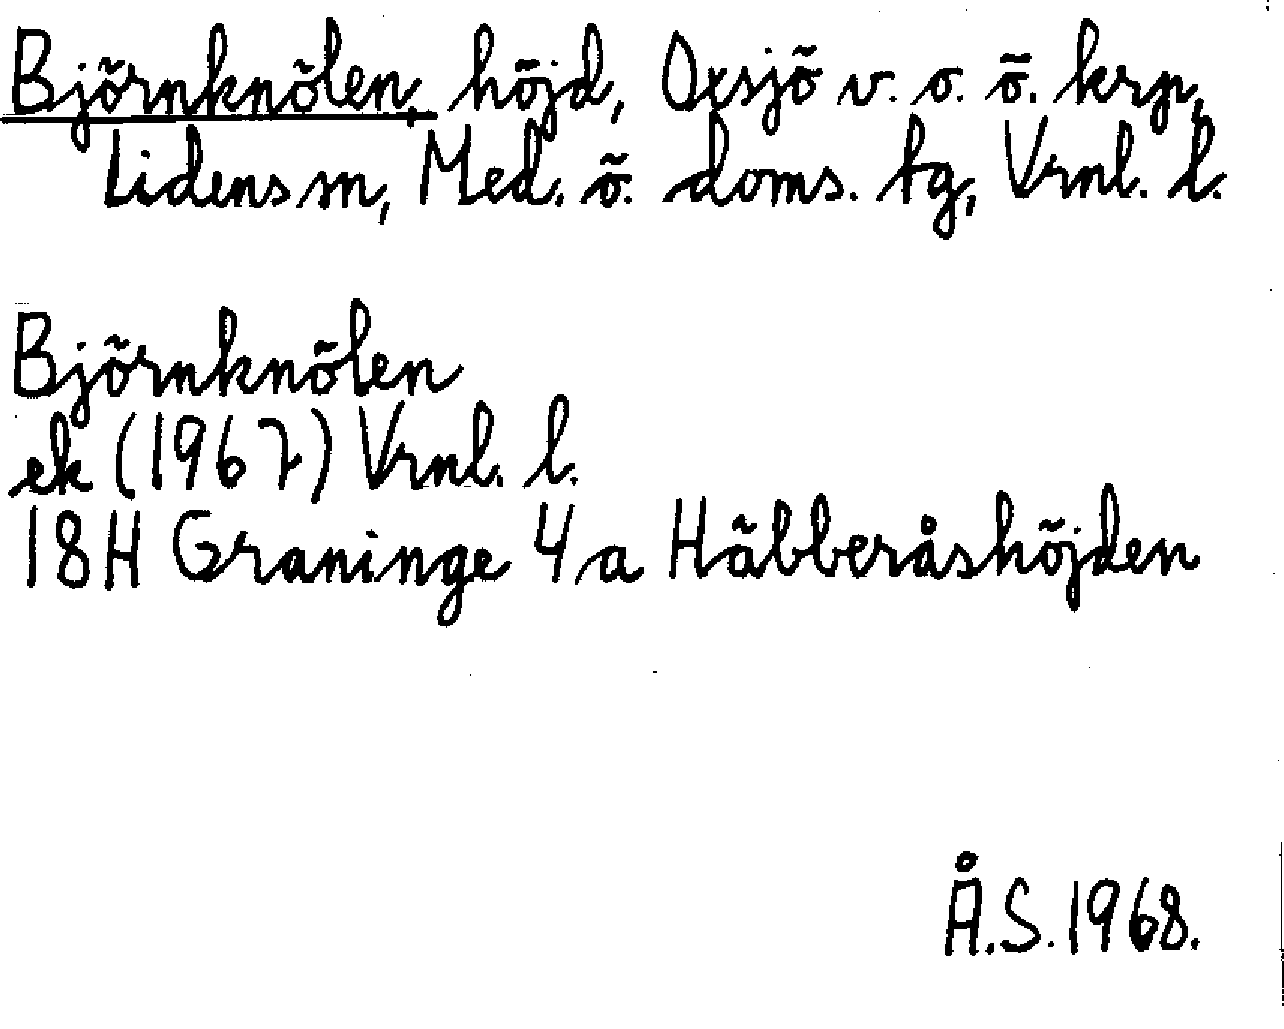 Björnknölen, höjd, Oxsjö v. o. ö. krp,
Lidens sn, Med. ö. doms. tg, Vrnl. l.
Björnknölen
ek (1967) Vrnl. l.
18H Graninge 4 a Häbberåshöjden
Å.S. 1968.